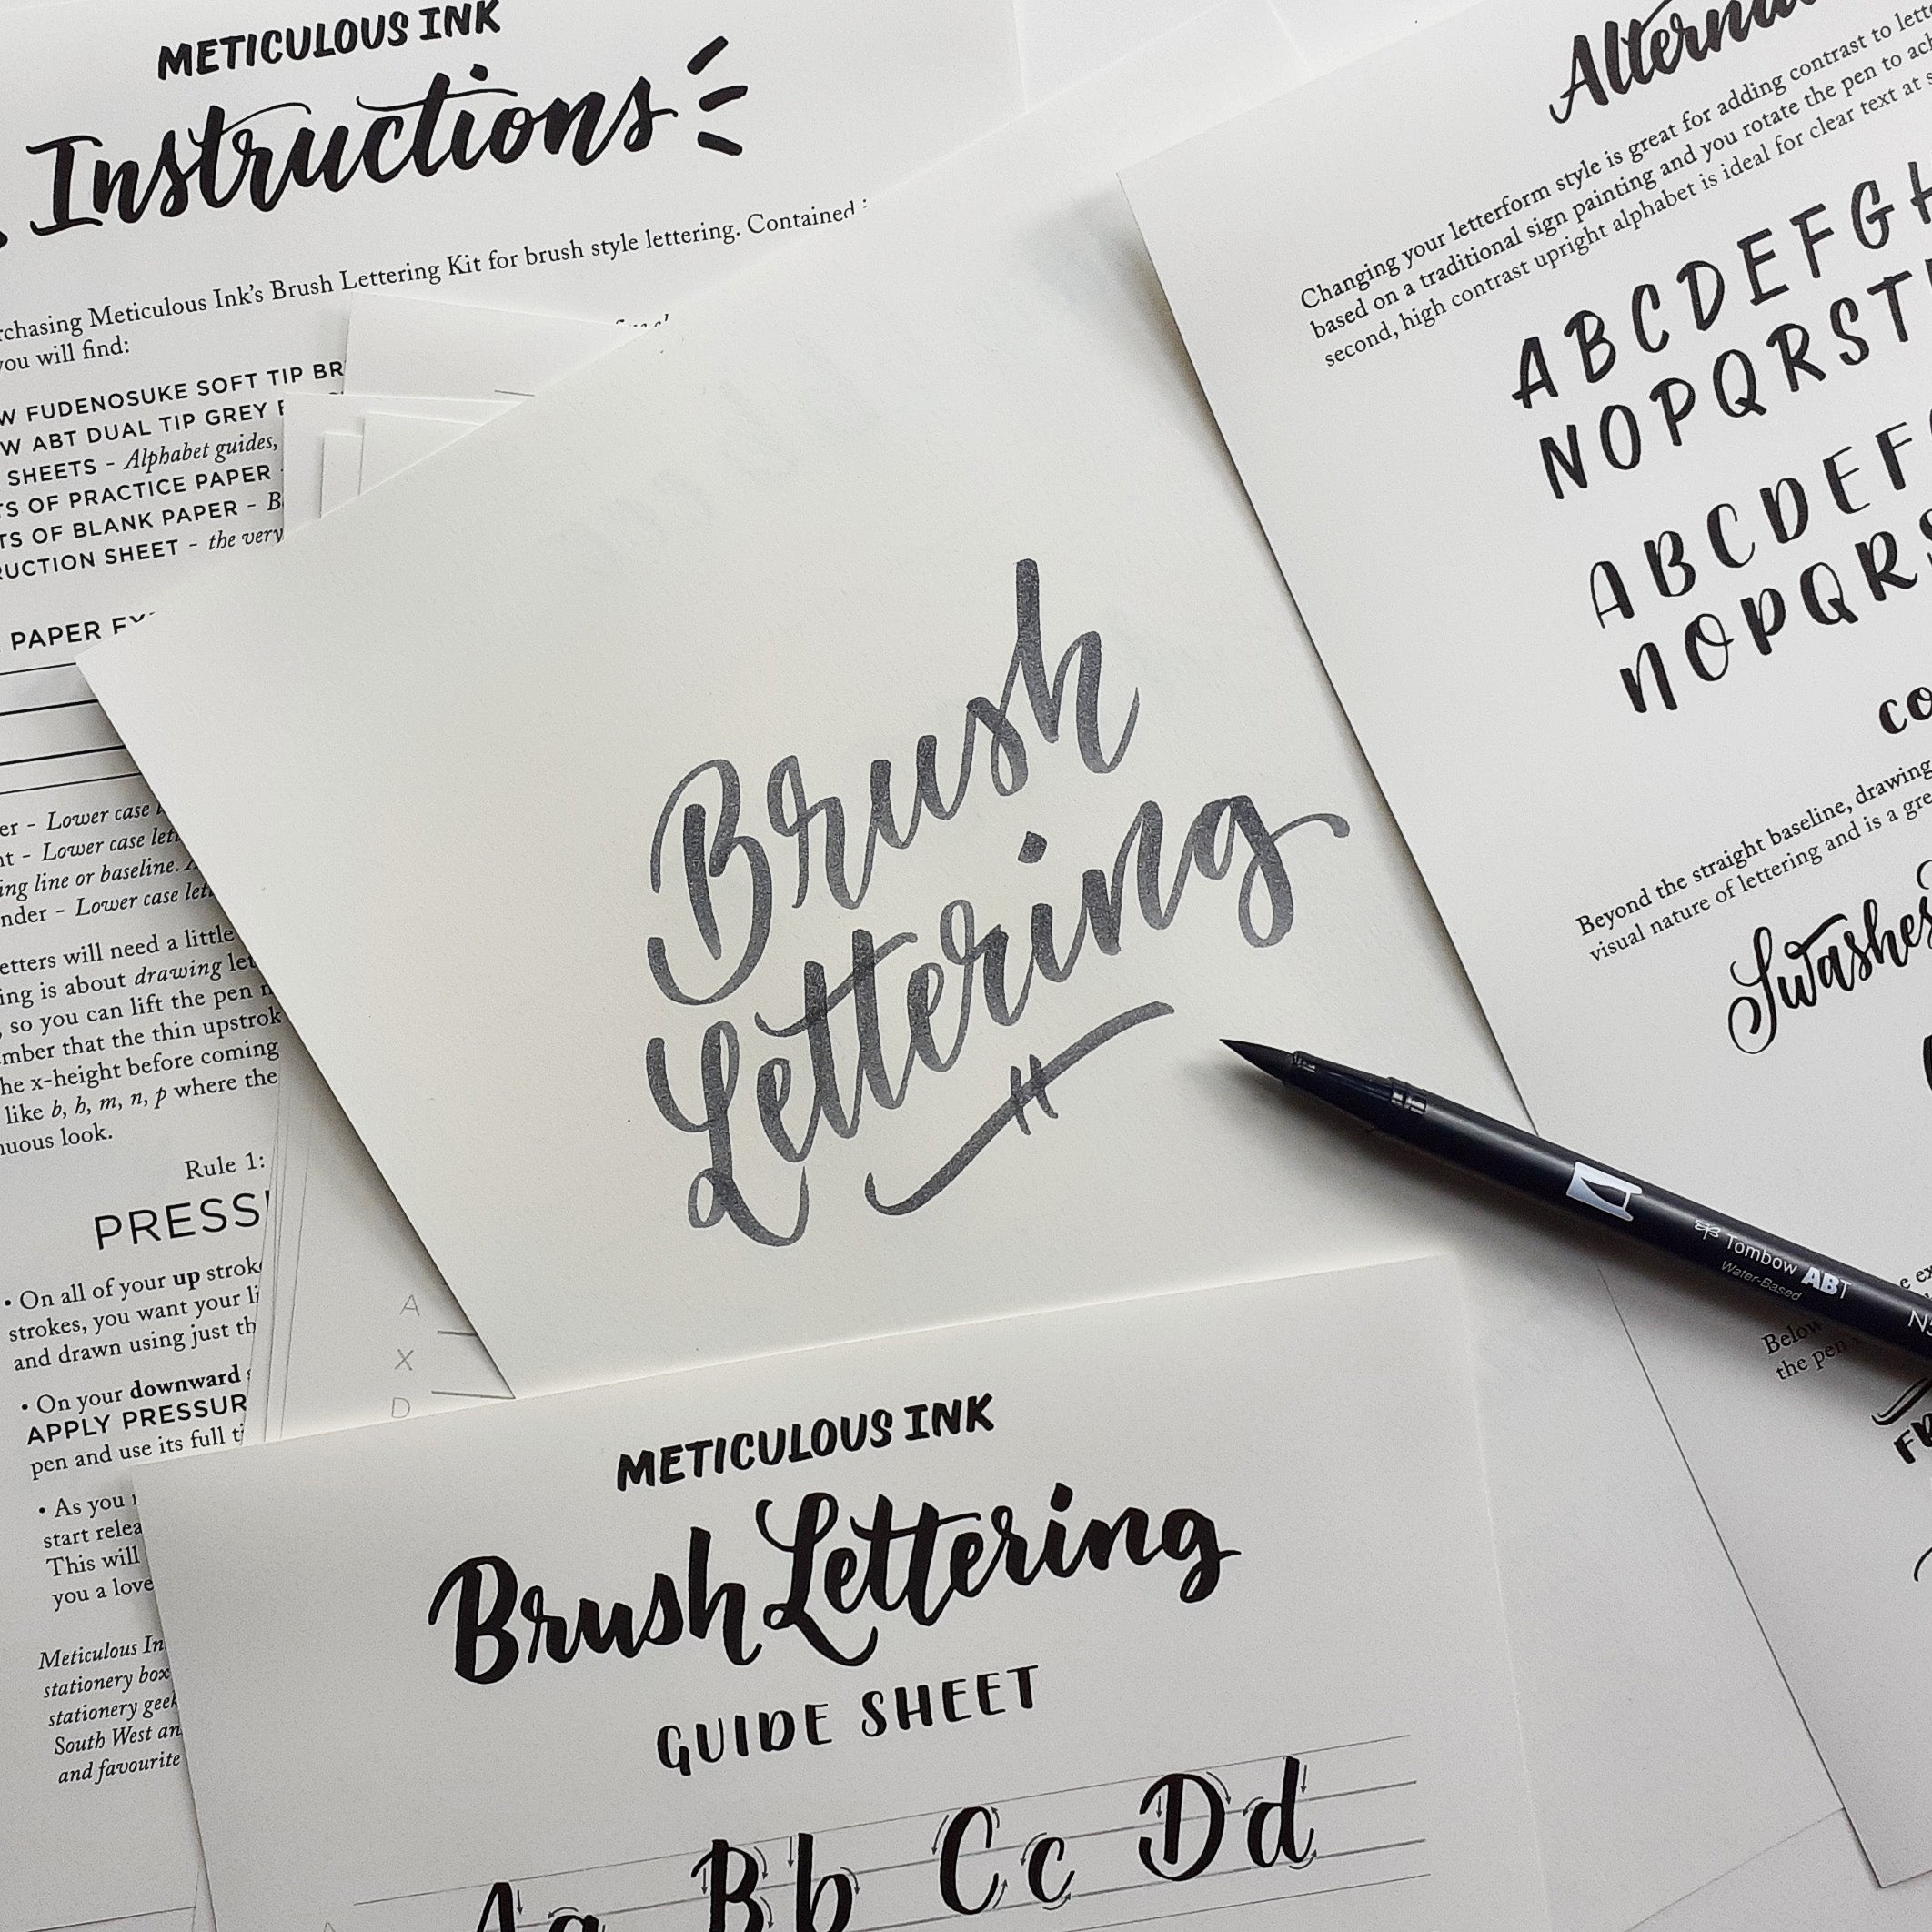 METICULOUS INK
Instructions
purchasing Meticulous Ink's Brush Lettering Kit for brush style lettering. Contained
you will find:
FUDENOSUKE SOFT TIP
ABT DUAL TIP GREY
SHEETS - Alphabet guides,
OF PRACTICE PAPER
OF BLANK PAPER -
SHEET - the very
PAPER
- Lower case
- Lower case
line or baseline.
- Lower case
letters will need a little
is about drawing
so you can lift the pen
that the thin
the x-height before coming
like b, h, m, n, p where the
look.
Rule 1:
• On all of your up
strokes, you want your
and drawn using just
• On your downward
APPLY
pen and use its full
• As you
start
This will
you a
Meticulous
stationery box
stationery
South West
and favourite
A
X
D
Brush
Lettering
Alternat
Changing your letterform style is great for adding contrast to
based on a traditional sign painting and you rotate the pen to
second, high contrast upright alphabet is ideal for clear text at
ABCDEFGH
NOPQRST
ABCDEF
NOPQRS
Beyond the straight baseline, drawing
visual nature of lettering and is a
Swashes
Below
the pen
Tombow ABT
Water-Based
METICULOUS INK
Brush Lettering
GUIDE SHEET
Aa Bb Cc Dd